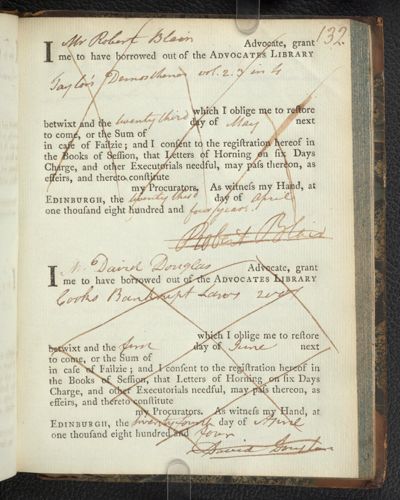 132
I Mr Robert Blair Advocate, grant
me to have borrowed out of the ADVOCATES LIBRARY
Taylor's Demosthenes vol. 2. & in 4
which I oblige me to reſtore
betwixt and the twenty third day of May next
to come, or the Sum of
in caſe of Failzie; and I conſent to the regiſtration hereof in
the Books of Seſſion, that Letters of Horning on ſix Days
Charge, and other Executorials needful, may paſs thereon, as
effeirs, and thereto conſtitute
my Procurators. As witneſs my Hand, at
EDINBURGH, the twenty third day of April
one thouſand eight hundred and four years
Robert Blair
I Mr David Douglas Advocate, grant
me to have borrowed out of the ADVOCATES LIBRARY
Cooks Bankrupt Laws
which I oblige me to reſtore
betwixt and the day of June next
to come, or the Sum of
in caſe of Failzie; and I conſent to the regiſtration hereof in
the Books of Seſſion, that Letters of Horning on ſix Days
Charge, and other Executorials needful, may paſs thereon, as
effeirs, and thereto conſtitute
my Procurators. As witneſs my Hand, at
EDINBURGH, the twenty fourth day of Aprile
one thouſand eight hundred and four
David Douglas